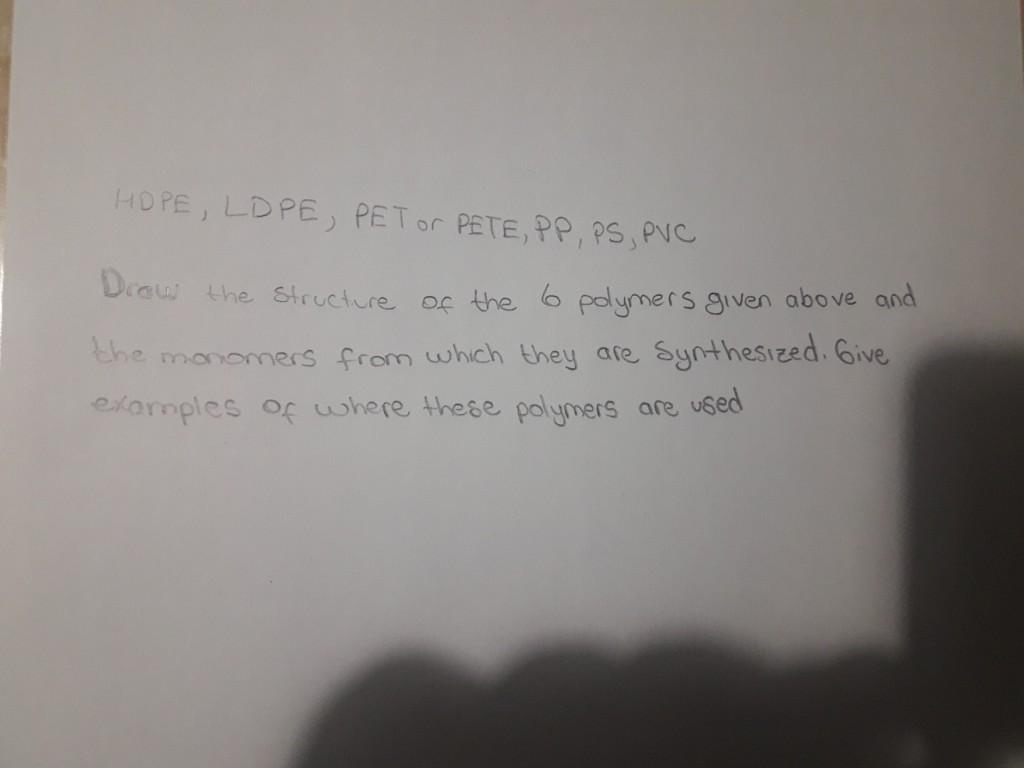 HDPE, LDPE, PET or PETE, PP, PS, PVC
Draw the structure of the 6 polymers given above and
the monomers from which they are synthesized. Give
examples of where these polymers are used